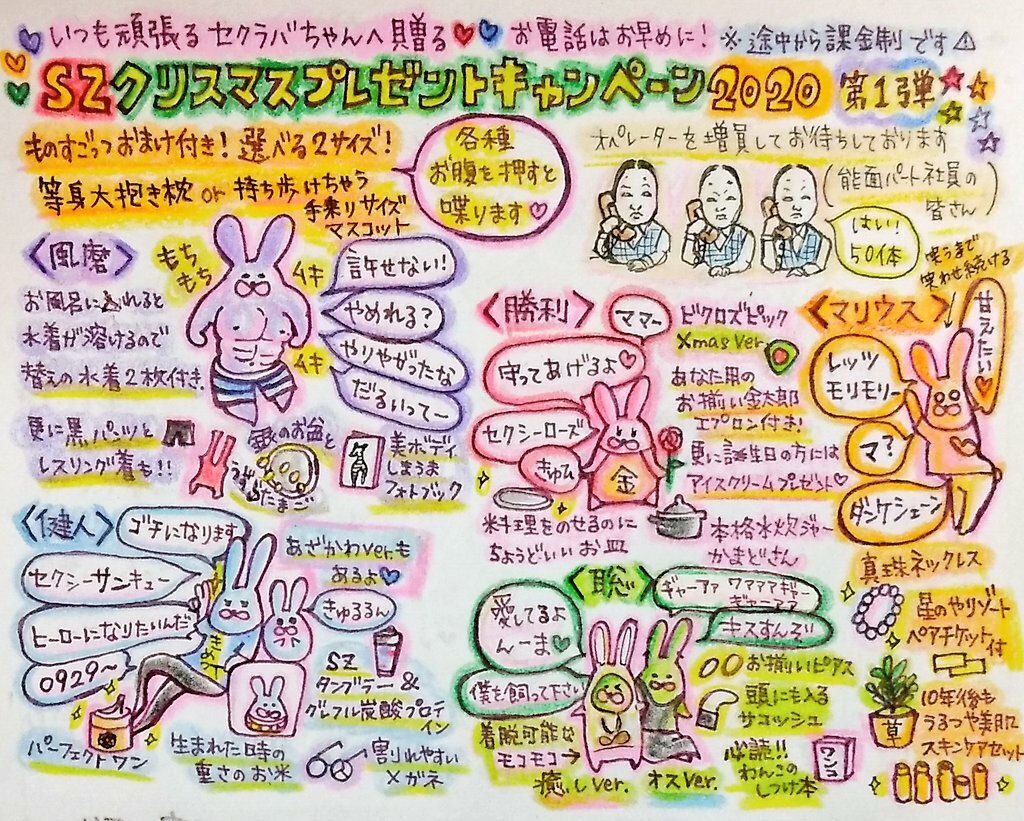 いつも頑張るセクラバちゃんへ贈る
お電話はお早めに!※途中から課金制です⚠
SZクリスマスプレゼントキャンペーン2020 第1弾
ものすごっつおまけ付き!選べる2サイズ!
等身大抱き枕 or 持ち歩けちゃう
手乗りサイズ
マスコット
各種
お腹を押すと
喋ります♡
オペレーターを増員してお待ちしております
(能面パート社員の
皆さん)
はい!
50体
<風磨>
もち
もち
ムキ
ムキ
許せない!
やめれる?
やりやがったな
だるいってー
お風呂に入れると
水着が溶けるので
替えの水着2枚付き.
更に黒パンツと
レスリング着も!!
銀のお盆と
うずらたまご
美ボディ
しまうま
フォトブック
<勝利>
ママー
守ってあげるよ♡
セクシーローズ
きゅん
金
ピクロズピック
Xmas Ver.
あなた用の
お揃い金太郎
エプロン付き!
更に誕生日の方には
アイスクリームプレゼント♡
米料理をのせるのに
ちょうどいいお皿
本格水炊ジャー
かまどさん
<マリウス>
笑うまで
笑わせ続ける
甘えたい♡
レッツ
モリモリー
マ?
ダンケシェーン
真珠ネックレス
星のやリゾート
ペアチケット付
草
10年後も
うるつや美肌
スキンケアセット
<健人>
ゴチになります
セクシーサンキュー
ヒーローになりたいんだ
0929〜
あざかわver.も
あるよ♡
きゅるるん
SZ
タンブラー&
グレフル炭酸プロテ
イン
パーフェクトワン
生まれた時の
重さのお米
割れやすい
メガネ
<聡>
愛してるよ
んーま♡
ギャーアァ ワァァァギャー
ギャーアァ
キスすんぞ!!
僕を飼って下さい
着脱可能な
モコモコ→
癒しver.
オスver.
お揃いピアス
頭にも入る
サコッシュ
必読!!
わんこの
しつけ本
ワンコ